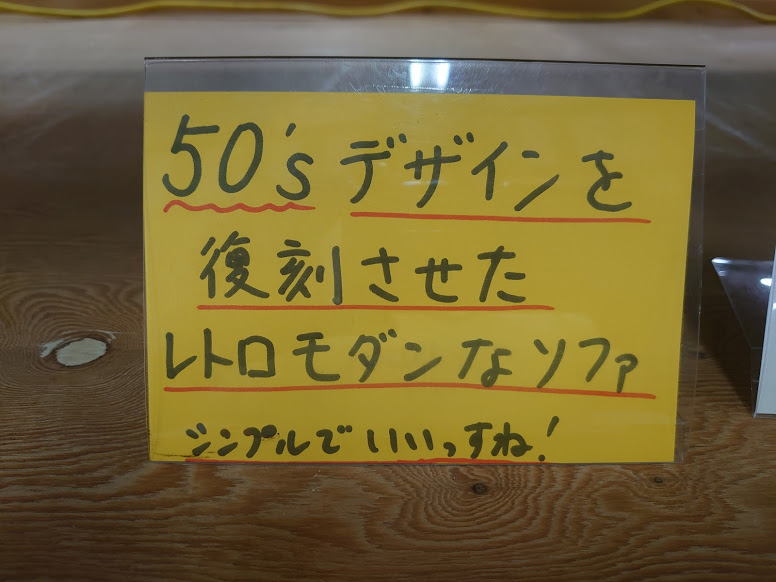 50's デザインを
復刻させた
レトロモダンなソファ
シンプルでいいっすね!